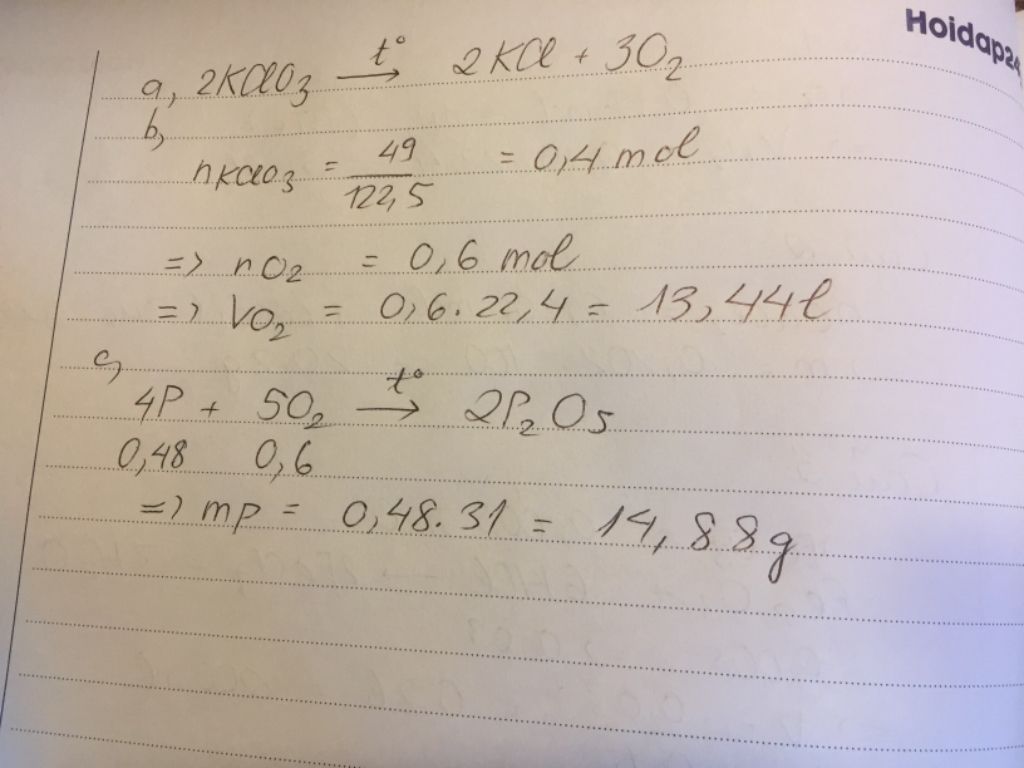 Hoidap24
a, 2KClO3 t° → 2KCl + 3O2
b,
nKClO3 = 49/122,5 = 0,4 mol
=> nO2 = 0,6 mol
=> VO2 = 0,6.22,4 = 13,44l
c,
4P + 5O2 t° → 2P2O5
0,48 0,6
=> mp = 0,48.31 = 14,88g